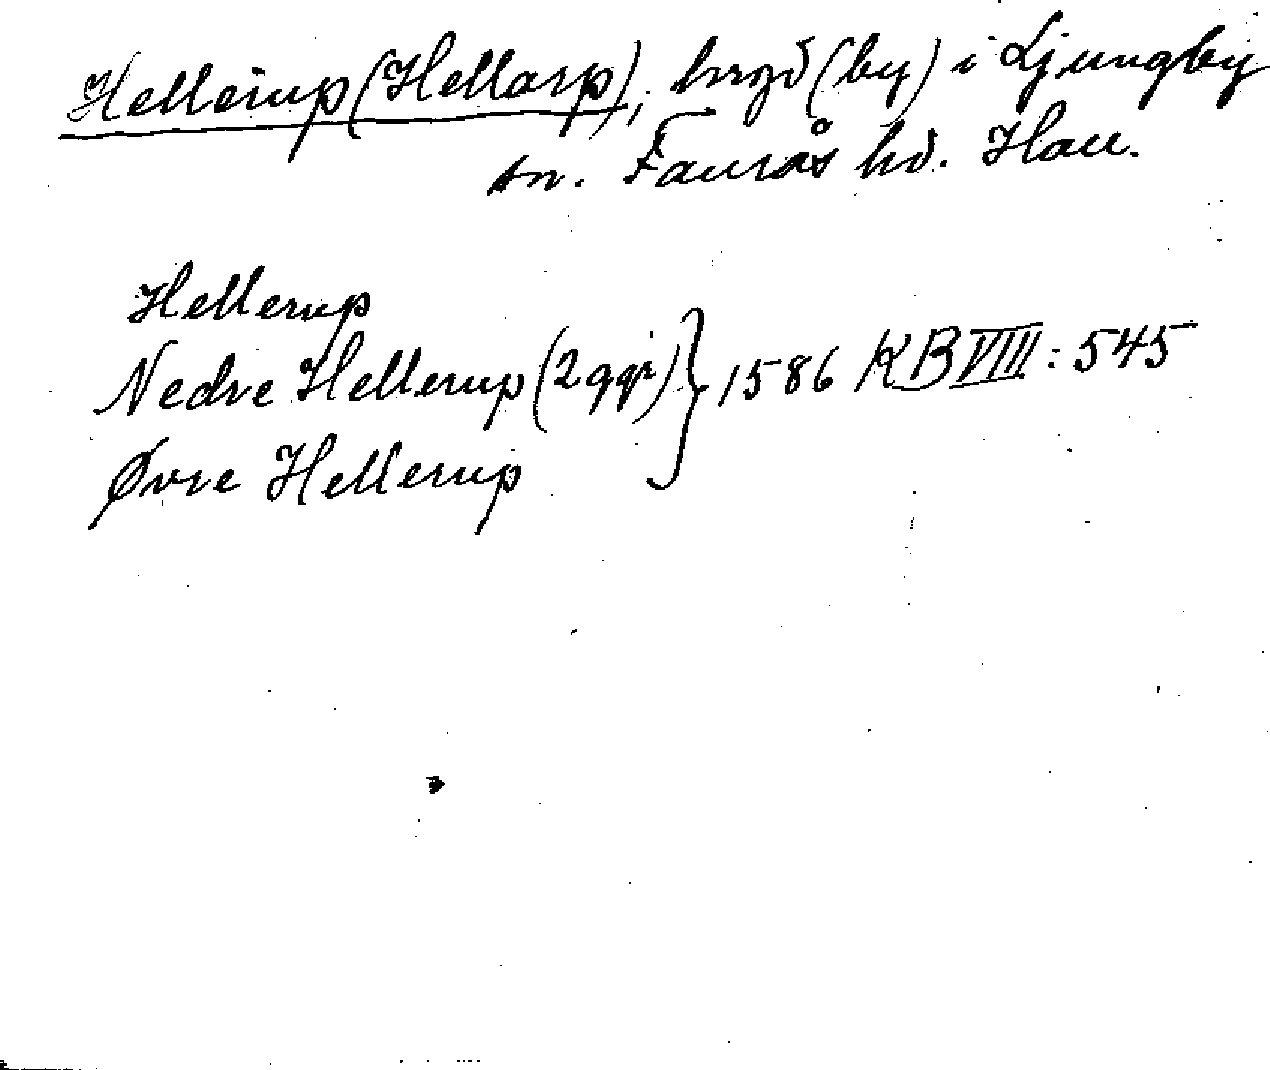 Hellerup (Hellarp), hrgd (by) i Ljungby
sn. Faurås hd. Hall.
Hellerup
Nedre Hellerup (2 ggr) } 1586 KB VIII: 545
Øvre Hellerup